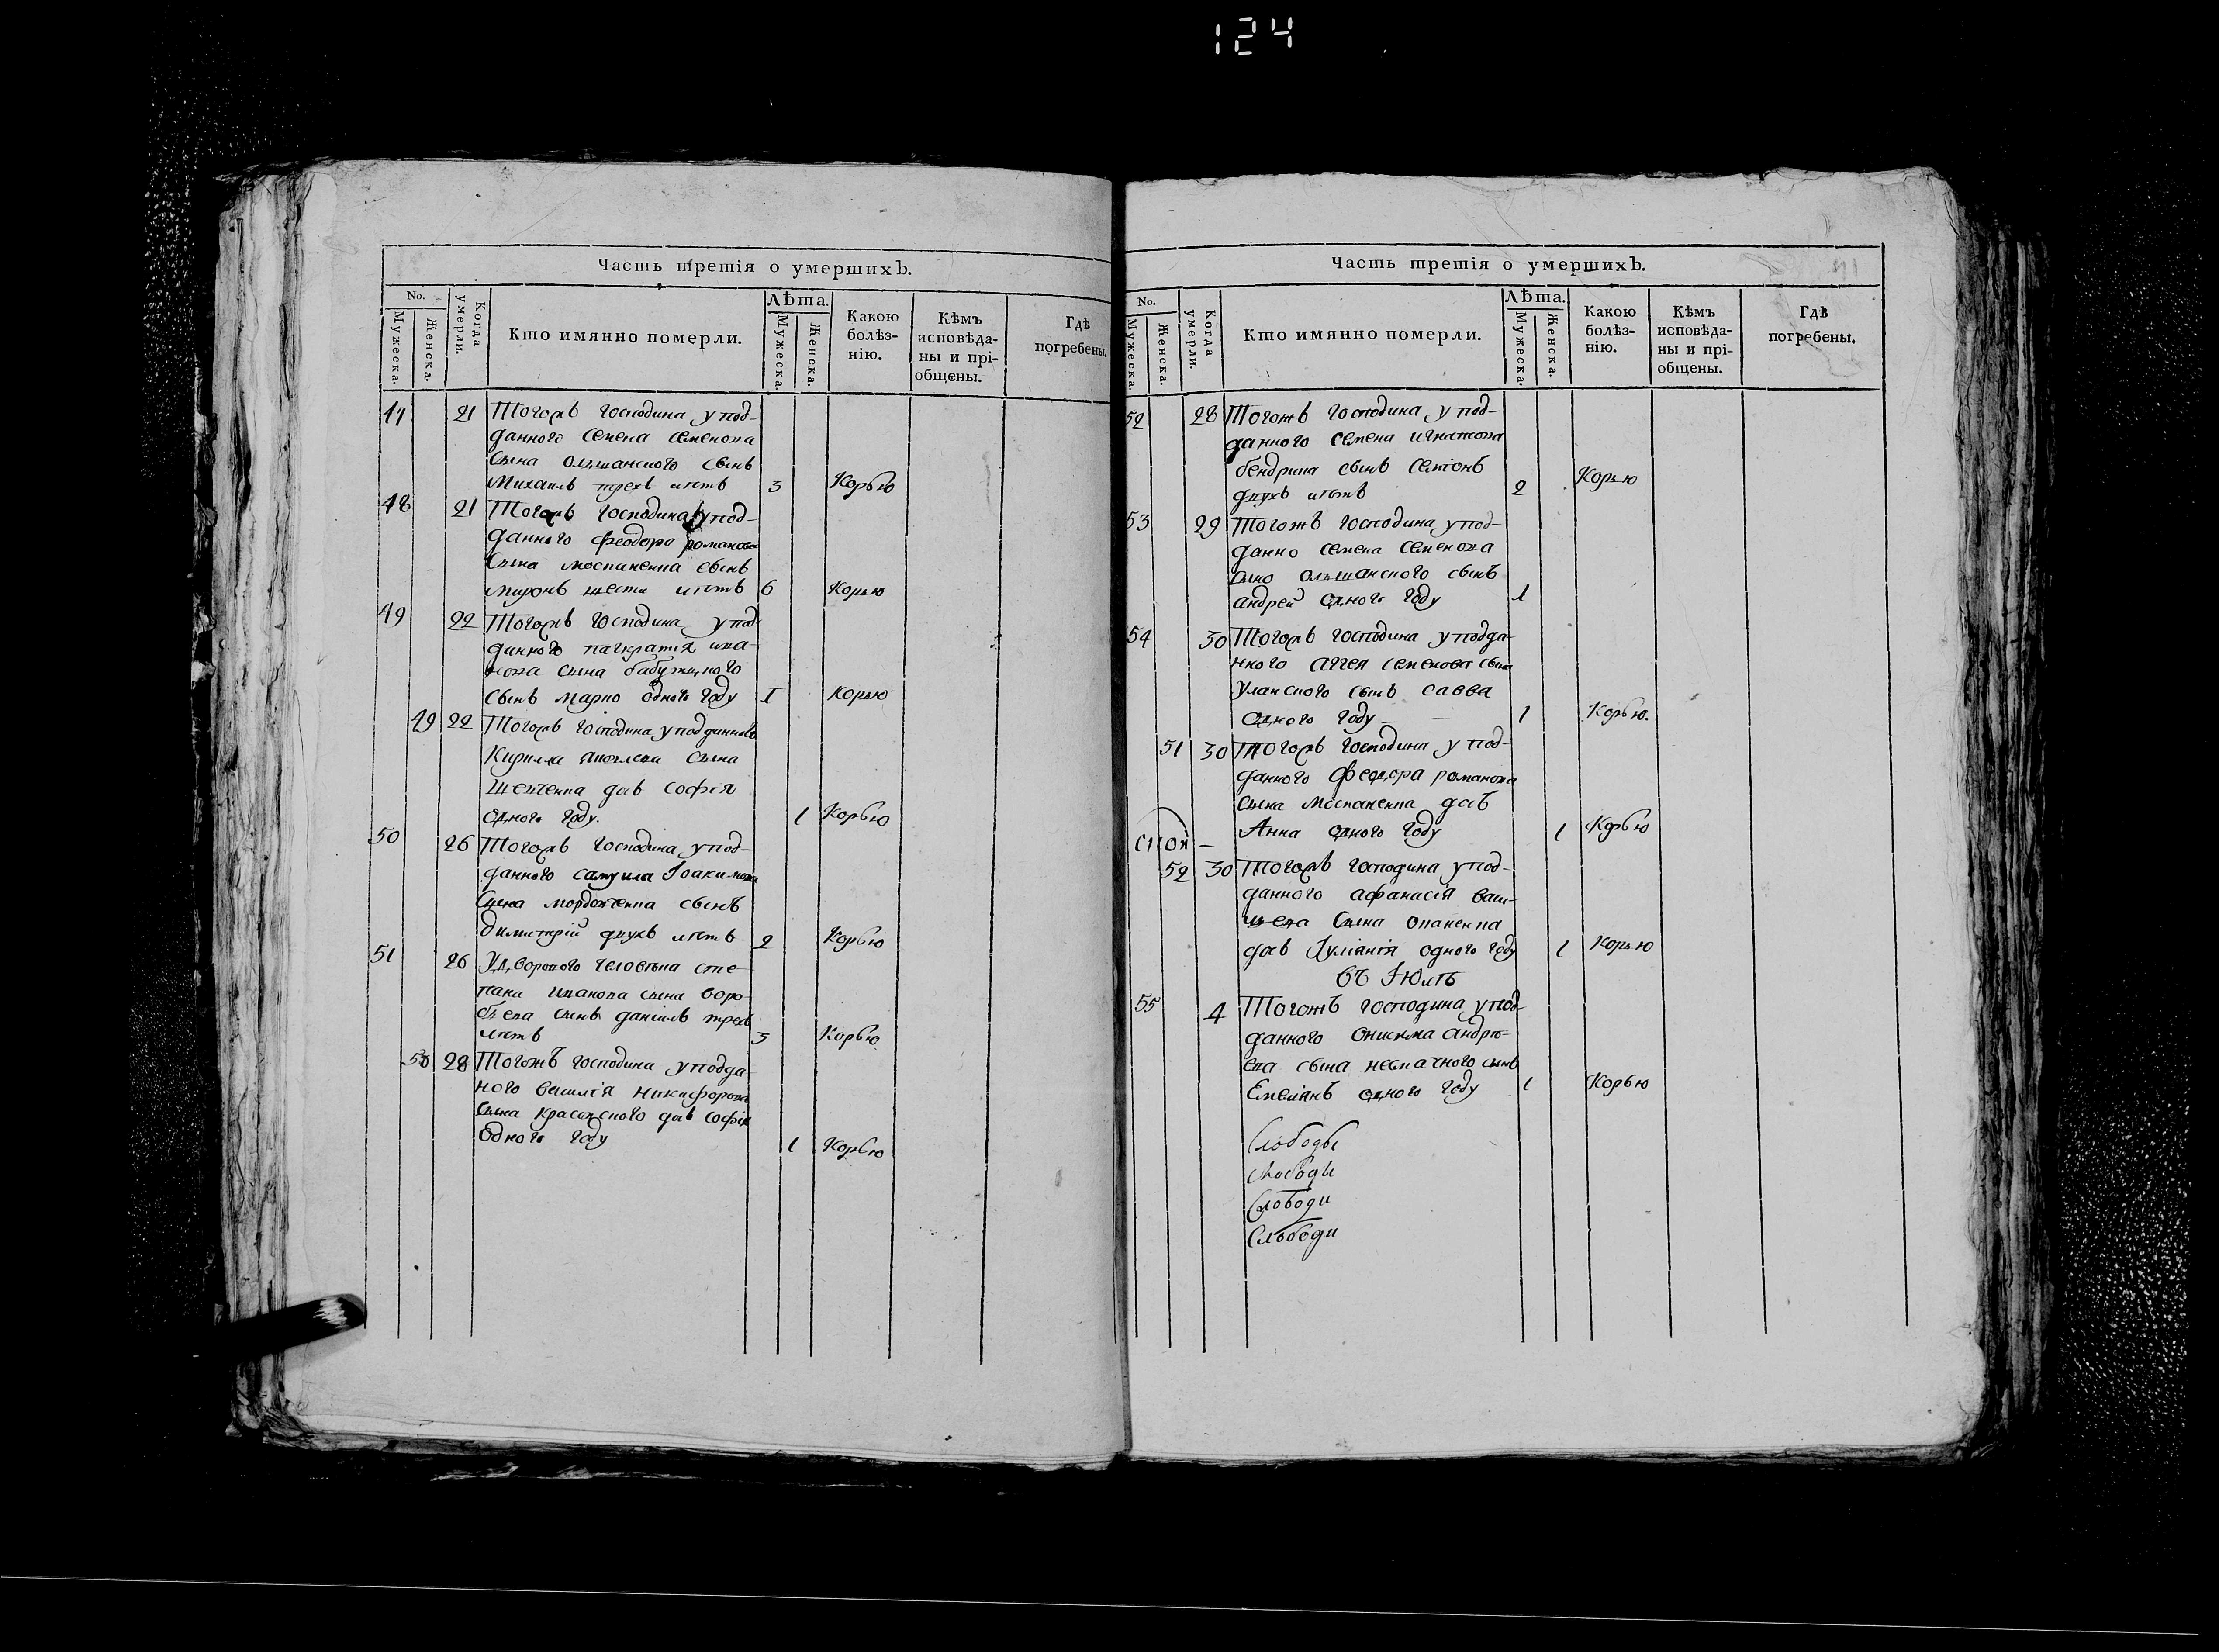 124
Часть третія о умершихъ.
No.
Мужеска.
Женска.
Когда умерли.
Кто имянно померли.
Лѣта.
Мужеска.
Женска.
Какою болѣз-
нію.
Кѣмъ
исповѣда-
ны и прі-
общены.
Гдѣ
погребены.
47 21 Тогожъ господина у под-
данного семена семенова
сына олшанского сынъ
Михаилъ трехъ лѣтъ 3 Корью
48 21 Тогожъ господина у под-
данного феодора романова
сына моспаненка сынъ
миронъ шести лѣтъ 6 Корью
49 22 Тогожъ господина у под
данного панкратія ива-
нова сына
сынъ марко одного году 1 корью
49 22 Тогожъ господина у подданного
Кирила сына
шевченка дчь софія
одного году. 1 Корью
50 26 Тогожъ господина у под-
данного самуила Іоакимова
сына сынъ
димитрій двухъ лѣтъ 2 Корью
51 26 У дворового человѣка сте-
пана иванова сына воро-
бъева сынъ даниилъ трехъ
лѣтъ 3 Корью
50 28 Тогожъ господина у подда
ного василія никифорова
сына дчь софія
одного году 1 Корью
Часть третія о умершихъ.
No.
Мужеска.
Женска.
Когда умерли.
Кто имянно померли.
Лѣта.
Мужеска.
Женска.
Какою
болѣз-
нію.
Кѣмъ
исповѣда-
ны и прі-
общены.
Гдѣ
погребены.
52 28 Тогожъ господина у под-
данного семена игнатова
сынъ
двухъ лѣтъ 2 Корью
53 29 Тогожъ господина у под-
данно семена семенова
сыно олшанского сынъ
андрей одного году 1
54 30 Тогожъ господина у подда-
нного аггея семенова сына
уланского сынъ савва
одного году 1 Корью.
51 30 Тогожъ господина у под-
данного феодора романова
сына моспаненка дчь
Анна одного году 1 Корью
52 30 Тогожъ господина у под-
данного афанасія васи-
сына опаненка
дчь Іуліанія одного году 1 Корью
въ Іюлѣ
55 4 Тогожъ господина у под-
данного онисима андрѣ-
ева сына сынъ
Емеліанъ одного году 1 Корью
Слободы
Слободи
Слободи
Слободи